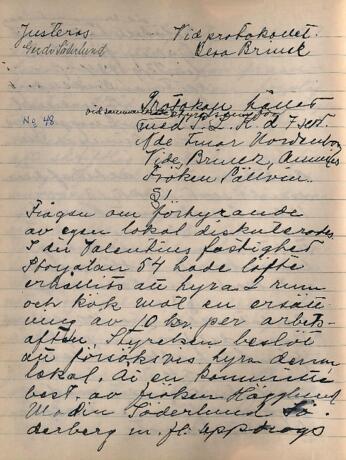 Justeras
Gerda Söderlund
Vid protokollet:
Vera Brunck
No 48
Protokoll hållet
vid sammanträde
med S. L. K. d 7 sept.
Vide, Brunck,
Fröken Sällvin.
§ 1
Frågan om förhyrande
av egen lokal diskuterades.
I dir Valentins fastighet
Storgatan 54 hade löfte
erhållits att hyra 2 rum
och kök mot en ersätt
ning av 10 kr. per arbets-
afton. Styrelsen beslöt
att försöksvis hyra denna
lokal. Åt en kommitté
best. av fröken Hägglund
Modin Söderlund Sö
derberg m. fl. uppdrogs